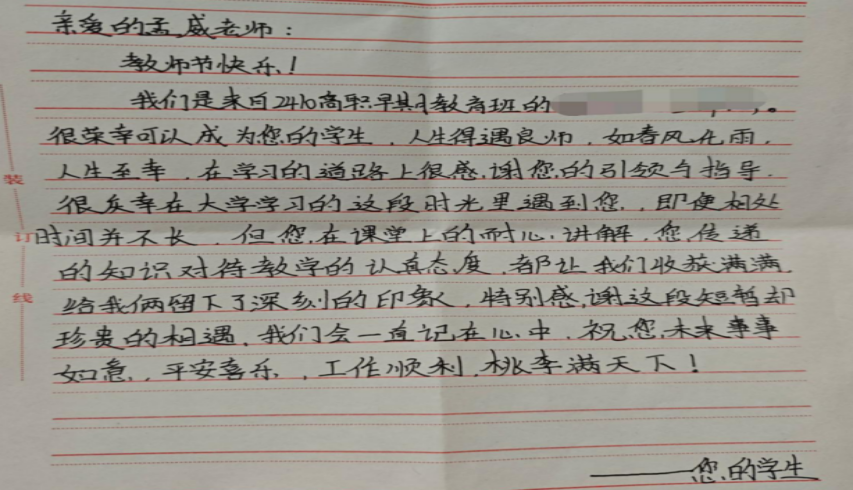 亲爱的孟威老师：
教师节快乐！
我们是来自2410高职早期教育班的
很荣幸可以成为您的学生，人生得遇良师，如春风化雨，
人生至幸，在学习的道路上很感谢您的引领与指导，
很庆幸在大学学习的这段时光里遇到您，即使相处
时间并不长，但您在课堂上的耐心讲解，您传递
的知识对待教学的认真态度，都让我们收获满满，
给我俩留下了深刻的印象，特别感谢这段短暂却
珍贵的相遇，我们会一直记在心中，祝您未来事事
如意，平安喜乐，工作顺利，桃李满天下！
——您的学生
装
订
线